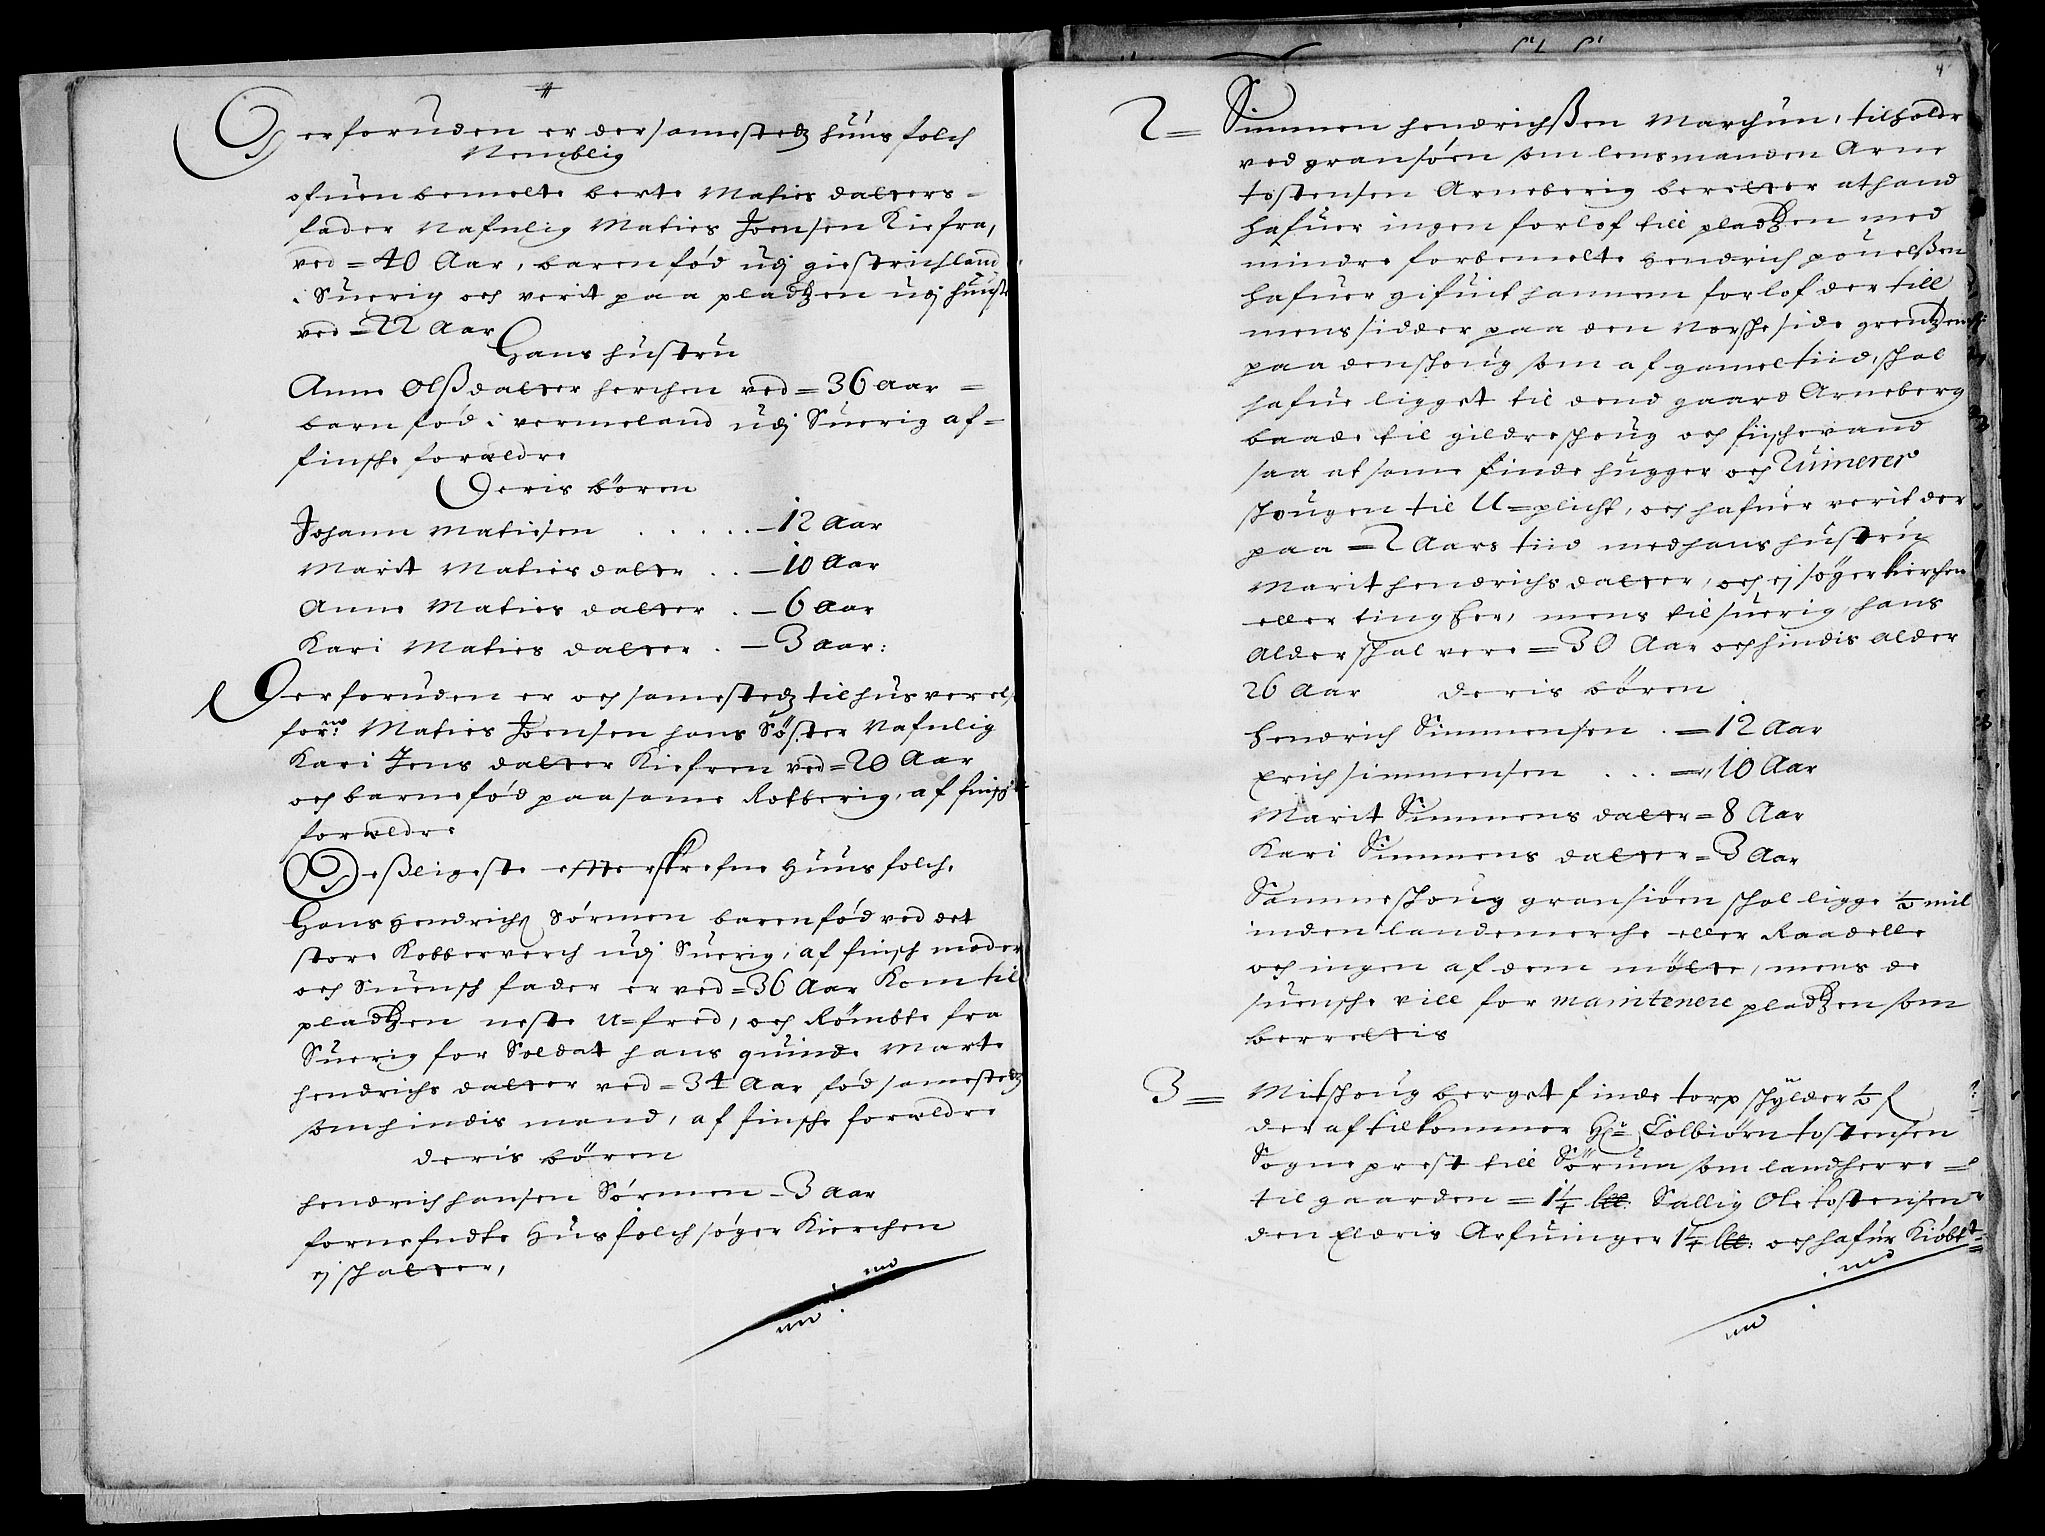 Derforuden er dersamestedz huusfolch
Nemblig
ofuenbemelte berte Maties datters
fader Nafnlig Maties Joensen Kiefra,
ved = 40 Aar, barenfød udj giestrichland
i Suerig och verit paa pladtzen udj
ved = 22 Aar
Hans hustru
Anne Olßdatter herchen ved = 36 aar =
barnfød i vermeland udj Suerig af =
finsche foræeldre
Deris börn
Johann Matiesen . . . . . – 12 Aar
Marit Maties datter . . – 10 Aar
Anne Maties datter . – 6 Aar
Kari Maties datter . – 3 aar:
Derforuden er och samestedz tilhus verel
for:ne Maties Joensen hans Söster Nafnlig
Kari Jens datter Kiefren ved = 20 Aar
och barnefød paa same Rotberig, af finsche
forældre
Deßligeste efterskrefne Huusfolch.
Hans Hendrichß Sörmen barenfød ved det
store Kobberverch udj Suerig, af finsch moder
och Suensch fader er ved = 36 Aar Kom til
pladtzen neste U=fred, och Römbte fra
Suerig for Soldat hans quinde Marte
hendrichs datter ved = 34 Aar fød samestedz
som hindis mand, af finsche forældre
deris börn
hendrich hansen Sörmen – 3 aar
fornefndte Husfolch søger Kierchen
ej schatter,
2 = Simmen hendrichßen Marchun, tilholdr
ved gransøen som lensmanden Arne
tostensen Arneberig beretter at hand
hafuer ingen forlof till pladtzen med
mindre forbemelte Hendrich pouelßen
hafuer gifuit hannem forlof der till
mens sidder paa den Norsche side grendtzen
paa den schoug som af gamel tiid, schal
hafue ligget til dend gaard Arneberg
baade til gildreschoug och fischevand
saa at same finde hugger och Ruinerer
schougen til U=plicht, och hafuer verit der
paa = 2 Aars tiid med hans hustru
Marit hendrichs datter, och ej søger kierchen
eller ting her, mens til suerig, hans
Alder schal vere = 30 Aar och hindis alder
26 Aar deris börn
Hendrich Simmensen . = 12 Aar
Erich simmensen . . . = 10 Aar
Marit Simmens datter = 8 Aar
Kari Simmens datter = 3 Aar
Sammeschoug gransiøen schal ligge ½ mil
inden landemerche eller Raadelle
och ingen af dem mötte, mens de
suensche vill for maintenere pladtzen som
berrettis
3 = Mitschoug berget finde torp schylder ½
der af tilkommer Hr: Colbiørn tostensen
Sogneprest till Sörum som landherre =
til gaarden = 1¼ Sallig Ole tostensen
den Elderis Arfuinger 1¼ och hafur Kiøbt